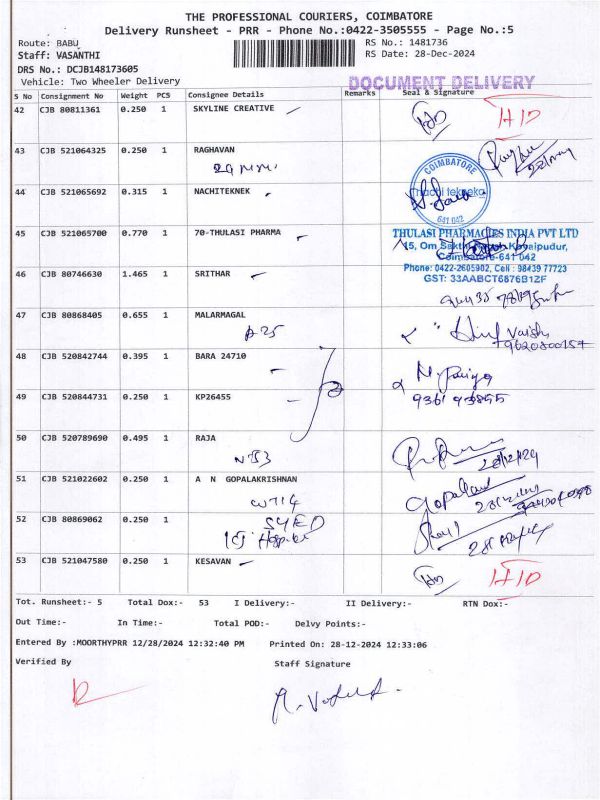 THE PROFESSIONAL COURIERS, COIMBATORE
Delivery Runsheet - PRR - Phone No.:0422-3505555 - Page No.:5
Route: BABU
RS No.: 1481736
Staff: VASANTHI
RS Date: 28-Dec-2024
DRS No.: DCJB148173605
Vehicle: Two Wheeler Delivery
DOCUMENT DELIVERY
S No Consignment No Weight PCS Consignee Details Remarks Seal & Signature
42 CJB 80811361 0.250 1 SKYLINE CREATIVE
HID
43 CJB 521064325 0.250 1 RAGHAVAN
COIMBATORE
44 CJB 521065692 0.315 1 NACHITEKNEK
641 042
45 CJB 521065700 0.770 1 70-THULASI PHARMA
THULASI PHARMACIES INDIA PVT LTD
Coimbatore-641 042
Phone: 0422-2605902, Cell : 98439 77723
GST: 33AABCT6876B1ZF
46 CJB 80746630 1.465 1 SRITHAR
47 CJB 80868405 0.655 1 MALARMAGAL
A25
48 CJB 520842744 0.395 1 BARA 24710
49 CJB 520844731 0.250 1 KP26455
50 CJB 520789690 0.495 1 RAJA
28/12/24
51 CJB 521022602 0.250 1 A N GOPALAKRISHNAN
W714
Gopalan
52 CJB 80869062 0.250 1
SYED
53 CJB 521047580 0.250 1 KESAVAN
HID
Tot. Runsheet:- 5 Total Dox:- 53 I Delivery:- II Delivery:- RTN Dox:-
Out Time:- In Time:- Total POD:- Delvy Points:-
Entered By :MOORTHYPRR 12/28/2024 12:32:40 PM Printed On: 28-12-2024 12:33:06
Verified By Staff Signature